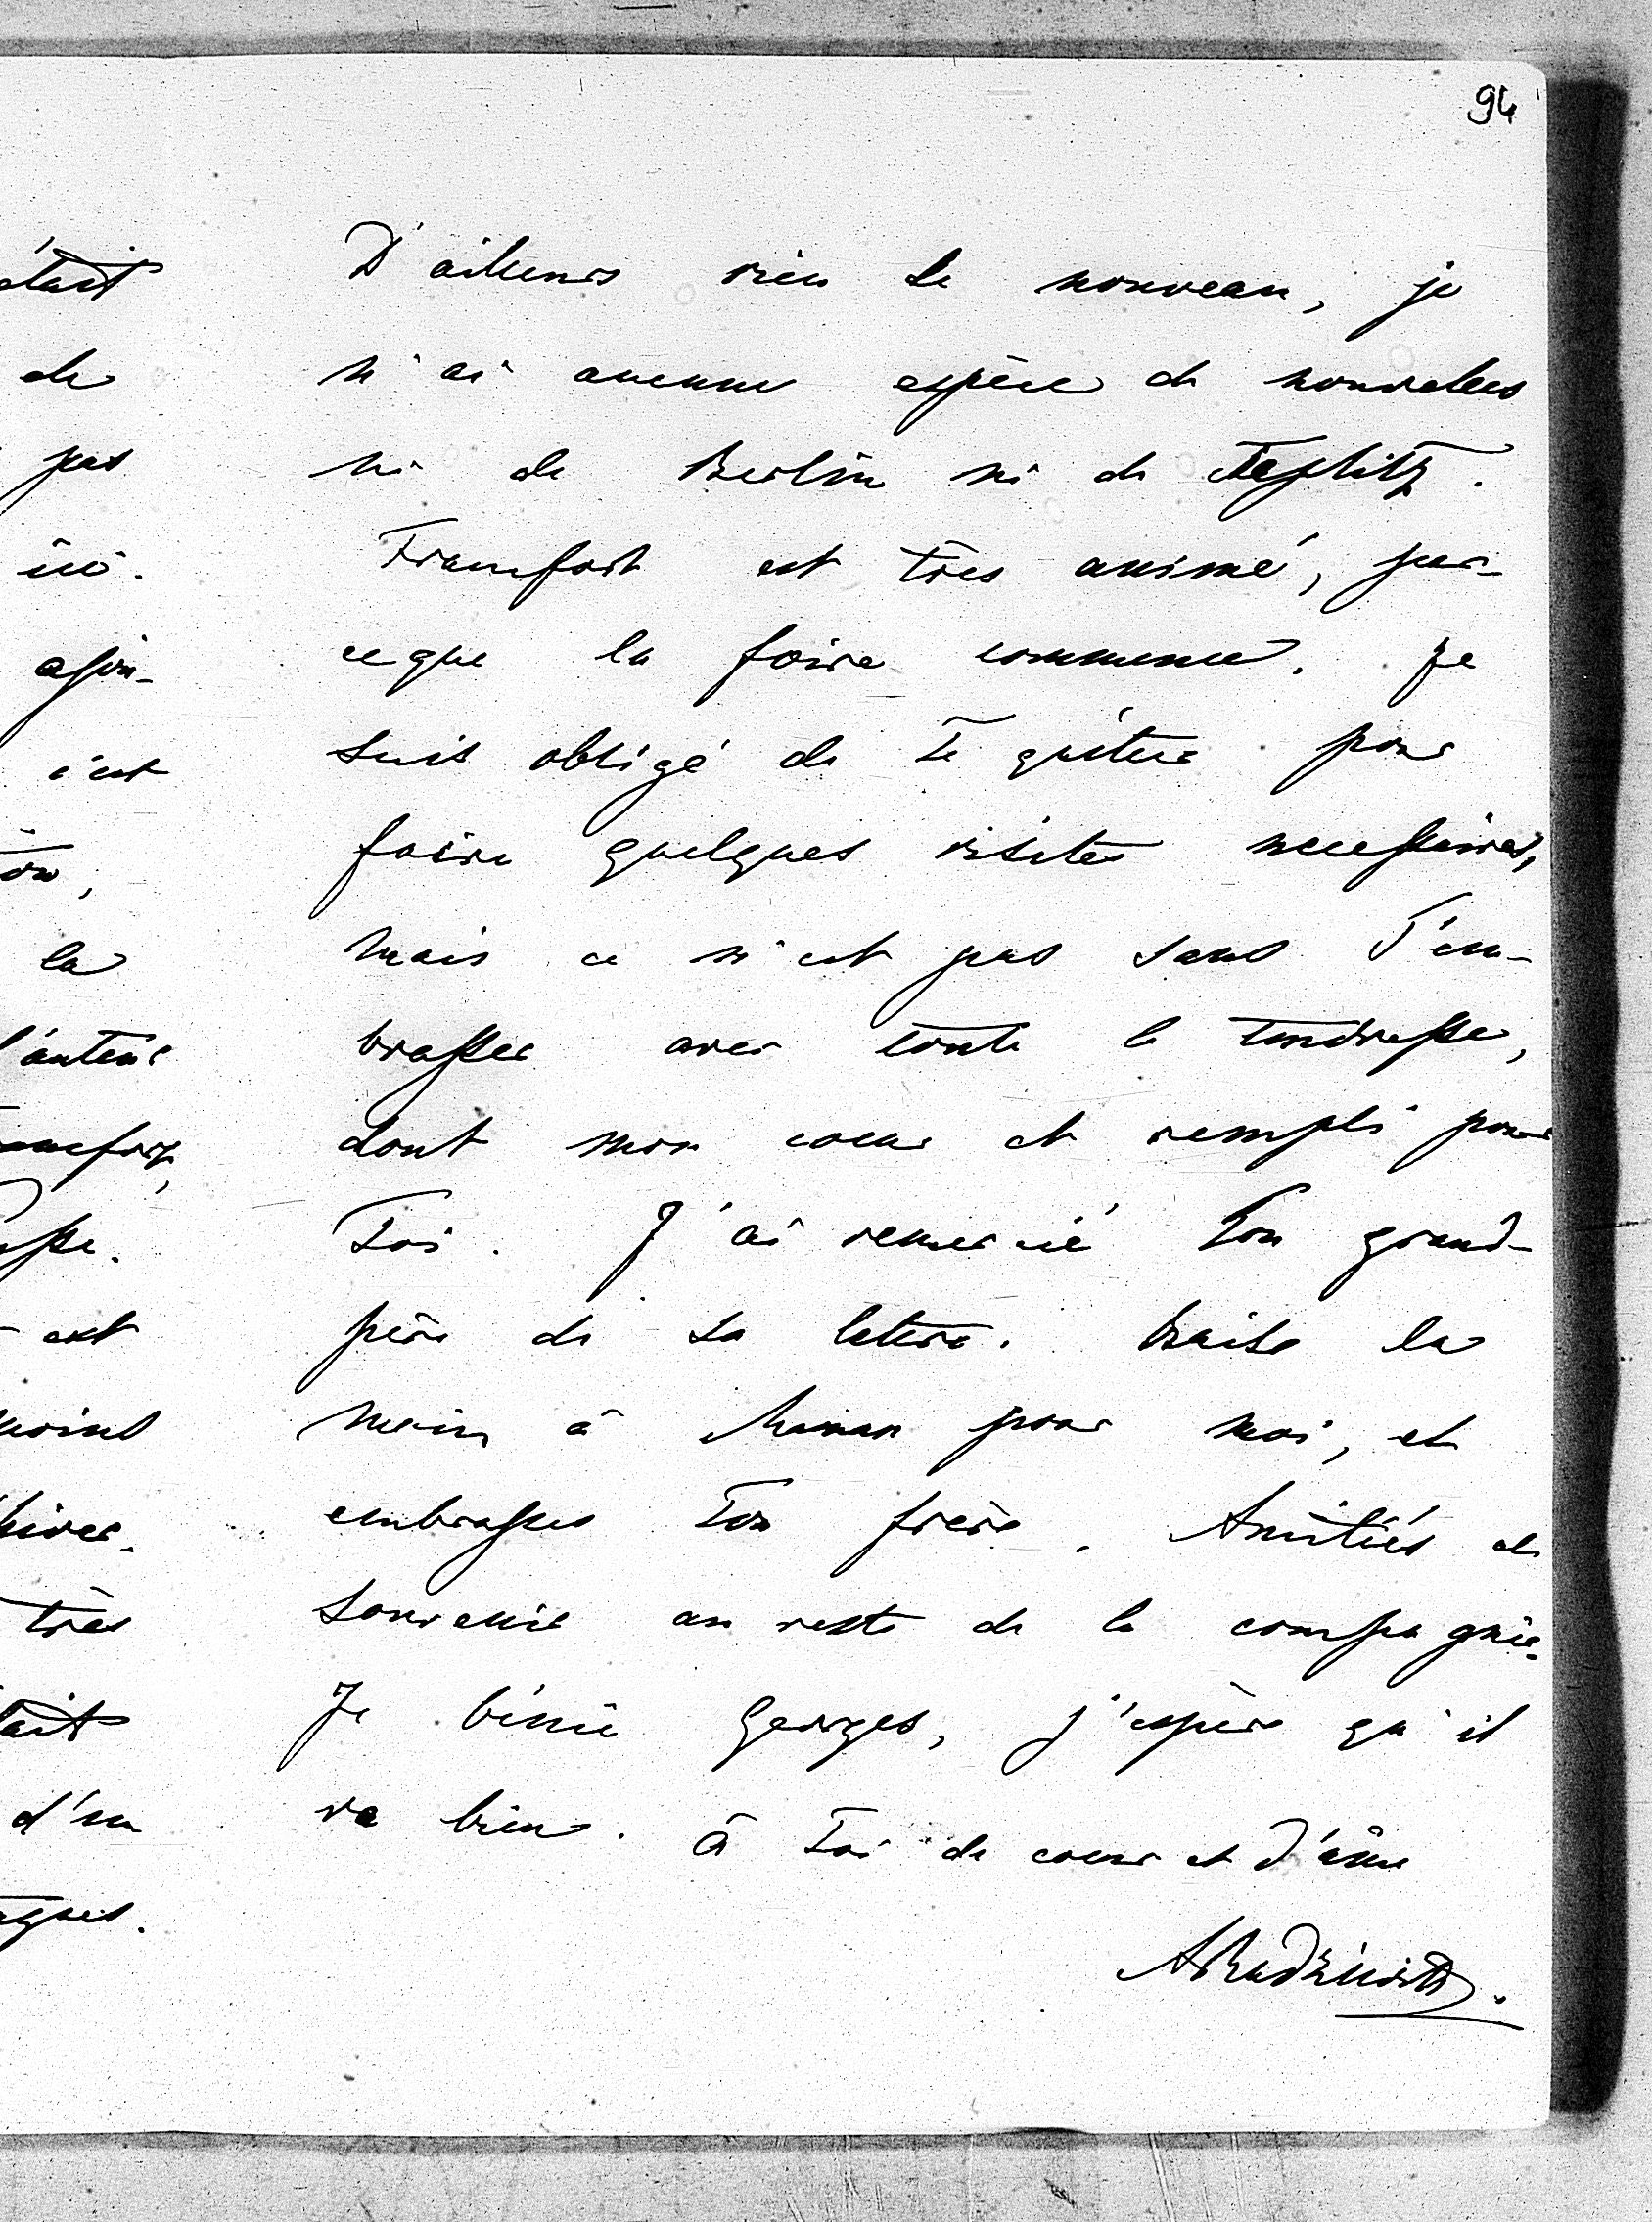 94
D'ailleurs rien de nouveau, je
n'ai aucune espèce de nouvelles
ni de Berlin ni de Teplitz.
Francfort est très animé, par-
ceque la foire commence. Je
suis obligé de Te quiter pour
faire quelques visites necessaires,
mais ce n'est pas sans T'em-
brasser avec toute la tendresse,
dont mon coeur est rempli pour
Toi. J'ai remercié Ton grand-
père de sa lettre. Baise la
main à Maman pour moi, et
embrasses Ton frère. Amitiés et
souvenir au reste de la compagnie.
Je bénie Georges, j'espère qu'il
va bien. à Toi de coeur et d'âme
ARadziwill.
était
de
pas
ici.
ajou-
c'est
la
l'auteur
est
moins
hiver.
très
d'un